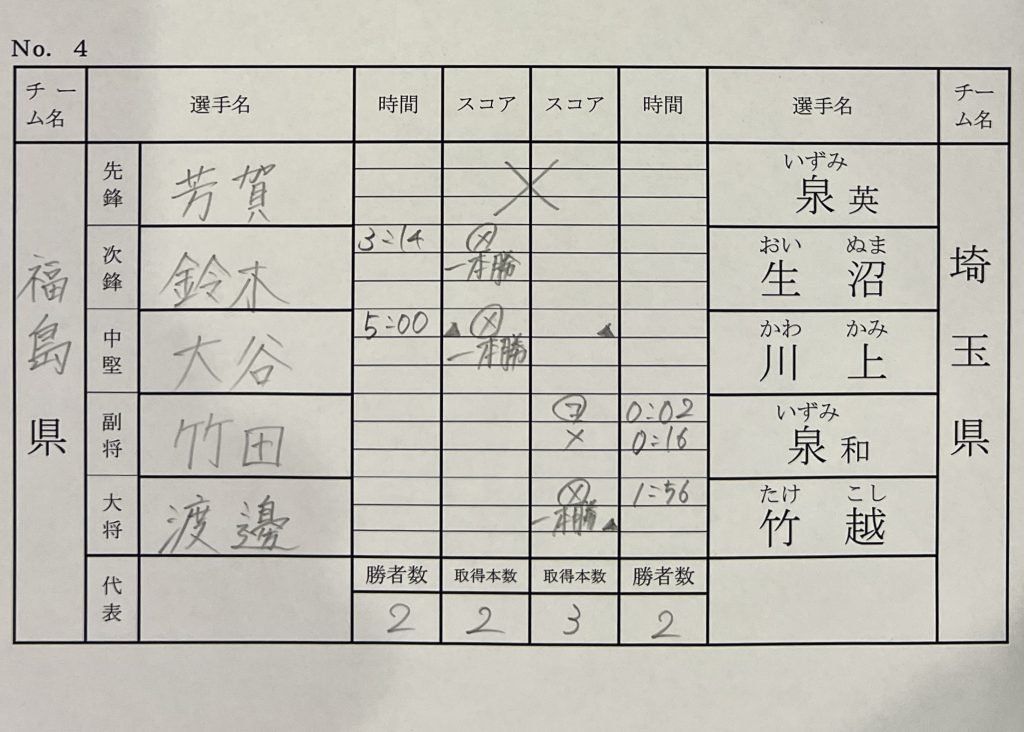 No. 4
チーム名 選手名 時間 スコア スコア 時間 選手名 チーム名
福島県
埼玉県
先鋒 芳賀 × 泉英 いずみ
次鋒 鈴木 3:14 メ 一本勝 生沼 おい ぬま
中堅 大谷 5:00 ▲ メ 一本勝 ▲ 川上 かわ かみ
副将 竹田 コ 0:02 泉和 いずみ
メ 0:16
大将 渡邊 メ 1:56 一本勝 ▲ 竹越 たけ こし
代表 勝者数 取得本数 取得本数 勝者数
2 2 3 2